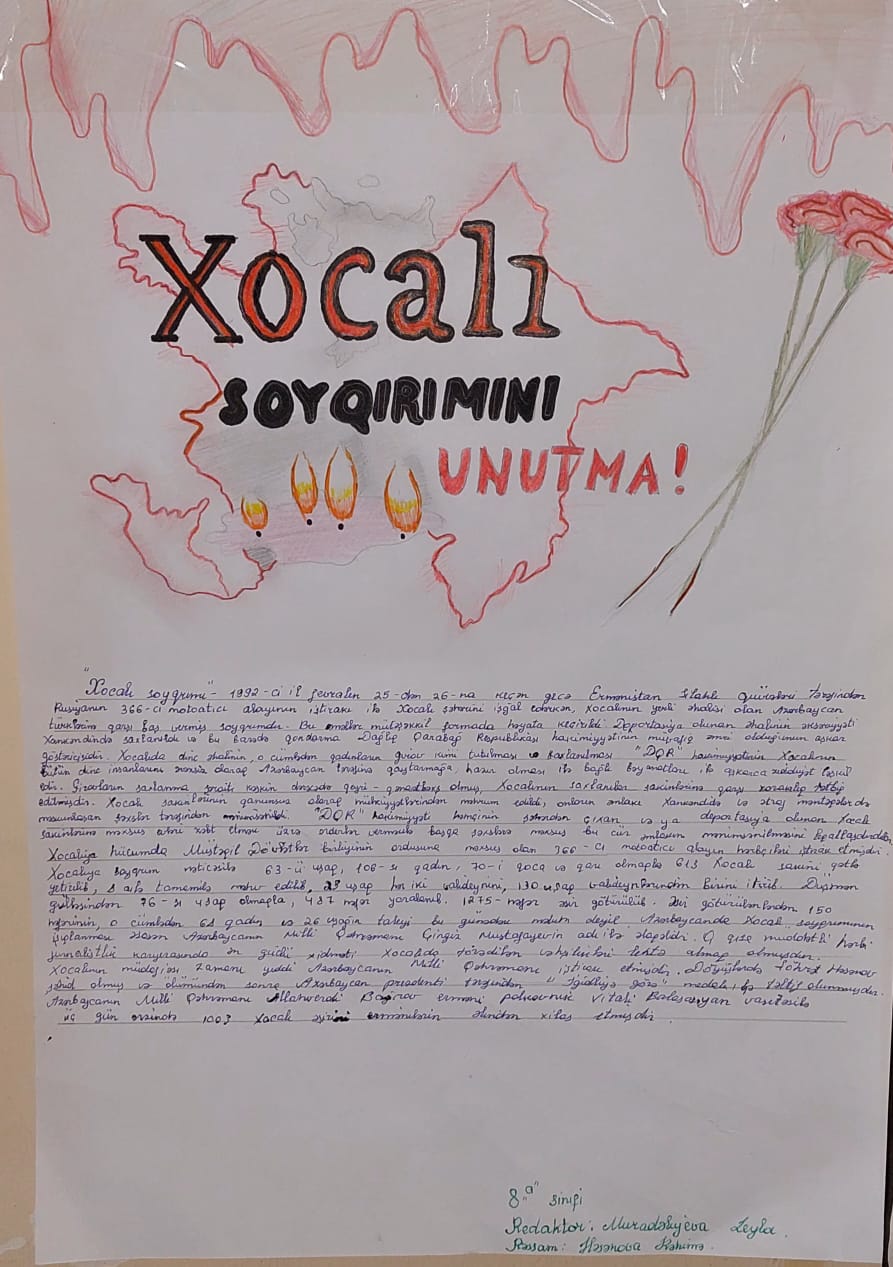 Xocalı
SOYQIRIMINI
UNUTMA!
"Xocalı soyqrımı" - 1992-ci il fevralın 25-dən 26-na keçən gecə Ermənistan Silahlı Qüvvələri tərəfindən
Rusiyanın 366-cı motoatıcı alayının iştirakı ilə Xocalı şəhərini işğal edərkən, xocalının yerli əhalisi olan Azərbaycan
türklərinə qarşı baş vermiş soyqrımdır. Bu əməllər mütəşəkkil formada həyata keçirildi. Deportasiya olunan əhalinin əksəriyyəti
Xankəndində saxlanıldı və bu barədə qondarma Dağlıq Qarabağ Respublikası hakimiyyətinin müvafiq əmri olduğunun aşkar
göstəricisidir. Xocalıda dinc əhalinin, o cümlədən qadınların girov kimi tutulması və saxlanılması "DQR" hakimiyyətinin Xocalının
bütün dinc insanlarını əvəzsiz olaraq Azərbaycan tərəfinə qaytarmağa hazır olması ilə bağlı bəyanatları ilə aşkarca ziddiyyət təşkil
edir. Girovların saxlanma şəraiti kəskin dərəcədə qeyri-qənaətbəxş olmuş, Xocalının saxlanılan sakinlərinə qarşı zorakılıq tətbiq
edilmişdir. Xocalı sakinlərinin qanunsuz olaraq mülkiyyətlərindən məhrum edildi, onların əmlakı Xankəndidə və ətraf məntəqələrdə
məskunlaşan şəxslər tərəfindən mənimsənildi. "DQR" hakimiyyəti həmçinin şəhərdən çıxan və ya deportasiya olunan Xocalı
sakinlərinə məxsus evləri zəbt etməsi üzrə orderlər verməklə başqa şəxslərə məxsus bu cür əmlakın mənimsənilməsini leqallaşdırdılar.
Xocalıya hücumda Müstəqil Dövlətlər Birliyinin ordusuna məxsus olan 366-cı motoatıcı alayın hərbçiləri iştirak etmişdir.
Xocalıya soyqrım nəticəsilə 63-ü uşaq, 106-sı qadın, 70-i qoca və qarı olmaqla 613 Xocalı sakini qətlə
yetirilib, 8 ailə tamamilə məhv edilib, 25 uşaq hər iki valideynini, 130 uşaq valideynlərindən birini itirib. Düşmən
gülləsindən 76-sı uşaq olmaqla, 487 nəfər yaralanıb. 1275-nəfər əsir götürülüb. Əsir götürülənlərdən 150
nəfərinin, o cümlədən 68 qadın və 26 uşağın taleyi bu günədək məlum deyil. Azərbaycanda Xocalı soyqırımının
işıqlanması əsasən Azərbaycanın Milli Qəhrəmanı Çingiz Mustafayevin adı ilə əlaqəlidir. O qısa müddətli hərbi
jurnalistlik karyerasında ən güclü xidməti Xocalıda törədilən vəhşilikləri lentə almaq olmuşdur.
Xocalının müdafiəsi zamanı yeddi Azərbaycanın Milli Qəhrəmanı iştirak etmişdir. Döyüşlərdə Tofret Həsənov
şəhid olmuş və ölümündən sonra Azərbaycan prezidenti tərəfindən "İgidliyə görə" medalı ilə təltif olunmuşdur.
Azərbaycanın Milli Qəhrəmanı Allahverdi Bağırov erməni polkovniki Vitali Balasanyan vasitəsilə
üç gün ərzində 1003 Xocalı əsirini ermənilərin əlindən xilas etmişdir.
8 "a" sinifi
Redaktor: Muradəliyeva Leyla.
Rəssam: Həsənova Rəhimə.